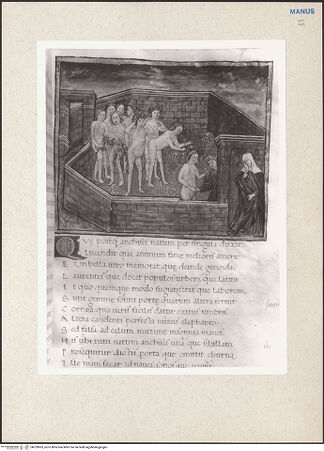 MANUS
QVE postq anchises natum per singula duxit
Incendit que animum fame melioris amore
Exin bella uiro memorat que deinde gerenda
Laurentes que docet populos urbem que latini
Et quo quemque modo fugiat feratque laborem
Sunt gemine somni porte quarum altera fertur
Cornea qua ueris facilis datur exitus umbris
Altera candenti perfecta nitens elephanto
Sed falsa ad celum mittunt insomnia manes
His ubi tum natum anchises una que sibillam
Prosequitur dictis porta que emittit eburna
Ille uiam secat ad naues